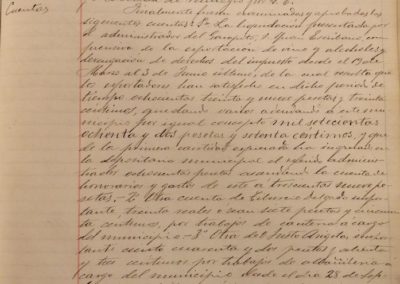 Cuentas
Finalmente fueron examinadas y aprobadas las
siguientes cuentas: 1ª La liquidacion presentada por
el administrador del D. Juan Escribano, com
prensiva de la esportacion de vino y alcoholes
de derechos del impuesto desde el 19 de
Marzo al 3 de Junio últimos, de la cual resulta que
los esportadores han satisfecho en dicho periodo de
tiempo ochocientas treinta y nueve pesetas y treinta
centimos, quedando varios adeudando al este mu
nicipio por igual concepto mil seiscientas
ochenta y dos pesetas y setenta centimos, y que
de la primera cantidad espresada ha ingresado en
la depositaria municipal el referido adminis-
trador ochocientas pesetas ascendiendo la cuenta de
honorarios y gastos de este á trescientas nueve pe
setas.- 2ª Otra cuenta de Liborio Delgado impor
tante, treinta reales ó sean siete pesetas y cincuen
ta centimos, por trabajos de cantería a cargo
del municipio.- 3ª Otra del Justo Angela impor
tante ciento cuarenta y dos pesetas y ochenta
y tres centimos por trabajos de albañileria a
cargo del municipio desde el dia 28 de Sep